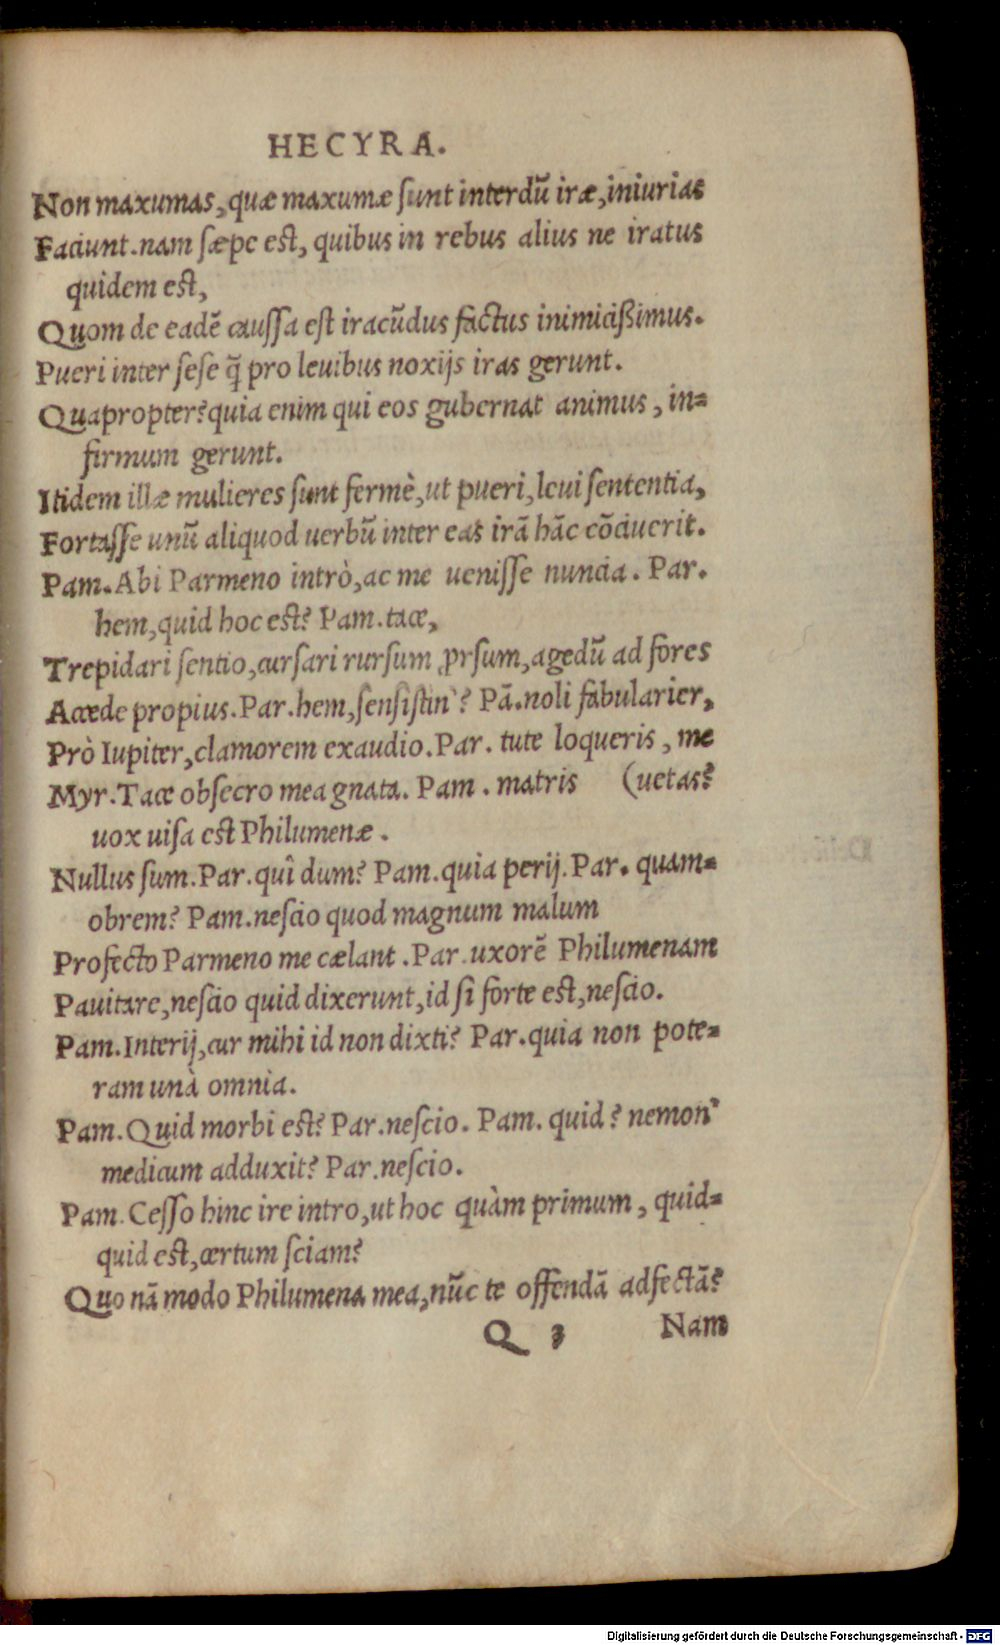 HECYRA.
Non maxumas, quæ maxumæ ſunt interdũ iræ, iniurias
Faciunt. nam ſæpe eſt, quibus in rebus alius ne iratus
quidem eſt,
Quom de eadẽ cauſſa eſt iracũdus factus inimicißimus.
Pueri inter ſeſe q̃ pro leuibus noxijs iras gerunt.
Quapropter? quia enim qui eos gubernat animus, in=
firmum gerunt.
Itidem illæ mulieres ſunt fermè, ut pueri, leui ſententia,
Fortaſſe unũ aliquod uerbũ inter eas irã hãc cõciuerit.
Pam. Abi Parmeno intrò, ac me ueniſſe nuncia. Par.
hem, quid hoc eſt? Pam. tace,
Trepidari ſentio, curſari rurſum ꝓrſum, agedũ ad fores
Accede propius. Par. hem, ſenſiſtin'? Pã. noli fabularier,
Prò Iupiter, clamorem exaudio. Par. tute loqueris, me
Myr. Tace obſecro mea gnata. Pam. matris (uetas?
uox uiſa eſt Philumenæ.
Nullus ſum. Par. quî dum? Pam. quia perij. Par. quam=
obrem? Pam. neſcio quod magnum malum
Profecto Parmeno me cælant. Par. uxorẽ Philumenam
Pauitare, neſcio quid dixerunt, id ſi forte eſt, neſcio.
Pam. Interij, cur mihi id non dixti? Par. quia non pote=
ram unà omnia.
Pam. Quid morbi eſt? Par. neſcio. Pam. quid? nemon'
medicum adduxit? Par. neſcio.
Pam. Ceſſo hinc ire intro, ut hoc quàm primum, quid=
quid eſt, certum ſciam?
Quo nã modo Philumena mea, nũc te offendã adfectã?
Q 3 Nam
Digitalisierung gefördert durch die Deutsche Forschungsgemeinschaft - DFG